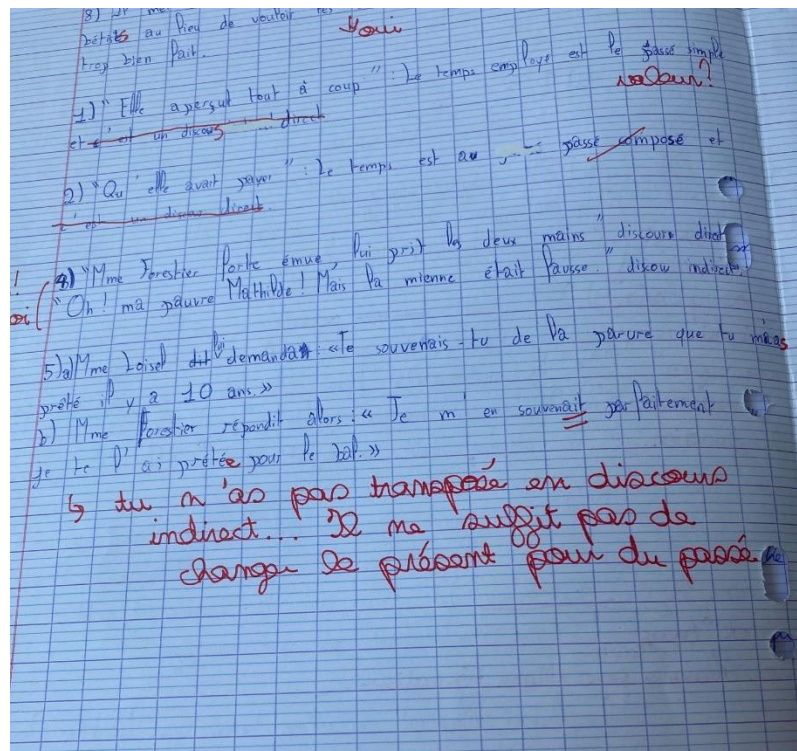 8) Il me
bétises au lieu de vouloir
trop bien fait.
Oui
1) "Elle aperçut tout à coup": Le temps employé est le passé simple
valeur?
et c'est un discours direct
2) "Qu'elle avait payer": Le temps est au passé composé et
c'est un discour direct.
4) "Mme Forestier forte émue, lui prit les deux mains" discours direct
"Oh! ma pauvre Mathilde! Mais la mienne était fausse." discour indirect.
5)a) Mme Loisel lui demanda: «Te souvenais-tu de la parure que tu m'as
prêté il y a 10 ans.»
b) Mme Forestier répondit alors: «Je m'en souvenait parfaitement
je te l'ai prêtée pour le bal.»
↳ tu n'as pas transposé en discours
indirect... Il ne suffit pas de
changer le présent pour du passé